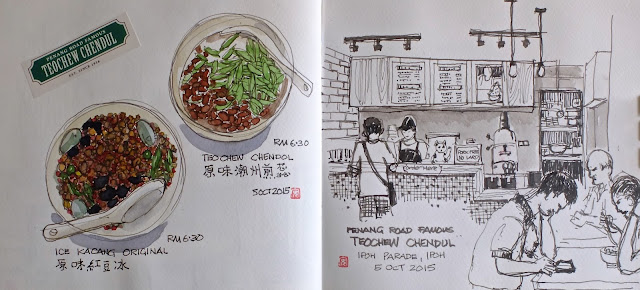 PENANG ROAD FAMOUS
TEOCHEW CHENDUL
EST. SINCE 1936
RM 6·30
TEOCHEW CHENDOL
原味潮州煎
5 OCT 2015
RM 6·30
ICE KACANG ORIGINAL
原味紅豆冰
PORK FREE
NO LARD
PENANG ROAD FAMOUS
TEOCHEW CHENDUL
IPOH PARADE, IPOH
5 OCT 2015